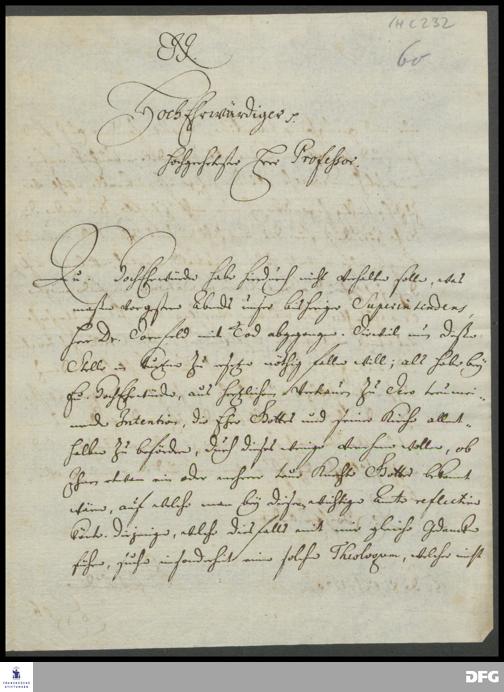 H C 232
60
HochEhrwürdiger
Hochgeehrtester Herr Professor.
Eu. HochEhrwürden habe hiedurch nicht verhalten sollen, was
maßen vorgestern Abends unser bisheriger Superintendens,
Herr Dr. mit Tod abgegangen. Dieweil nun dessen
Stelle zu ersetzen nöthig fallen will; als habe bey
Eu. HochEhrwürden, aus herzlichem Vertrauen zu Dero
Intention, die Ehre Gottes und seiner Kirche allent-
halben zu befördern, durch dieses wenige vernehmen wollen, ob
Ihnen etwan ein oder mehrere treue Knechte Gottes bekannt
wären, auf welche man bey diesem wichtigen Amte reflectiren
könte. Diejenige, welche dießfalls mit mir gleiche Gedancken
führen, suchen insonderheit einen solchen Theologum, welcher nicht
FRANCKESCHE
STIFTUNGEN
DFG